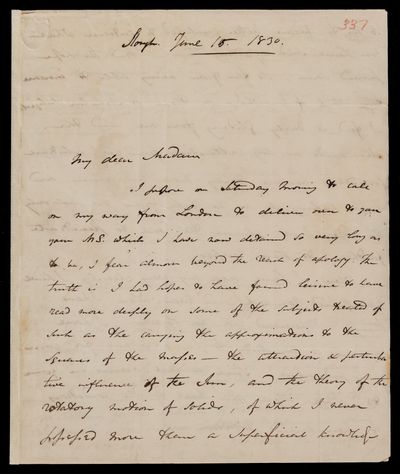 337
Slough. June 15. 1830.
My dear Madam
I propose on Saturday morning to call
on my way from London to deliver over to you
your MS. which I have now detained so very long as
to be, I fear almost beyond the reach of apology. The
truth is I had hopes to have found leisure to have
read more deeply on some of the subjects treated of
such as the carrying the approximations to the
squares of the masses — the attraction & perturba
tive influence of the Sun, and the theory of the
rotatory motion of solids, of which I never
possessed more than a superficial knowledge